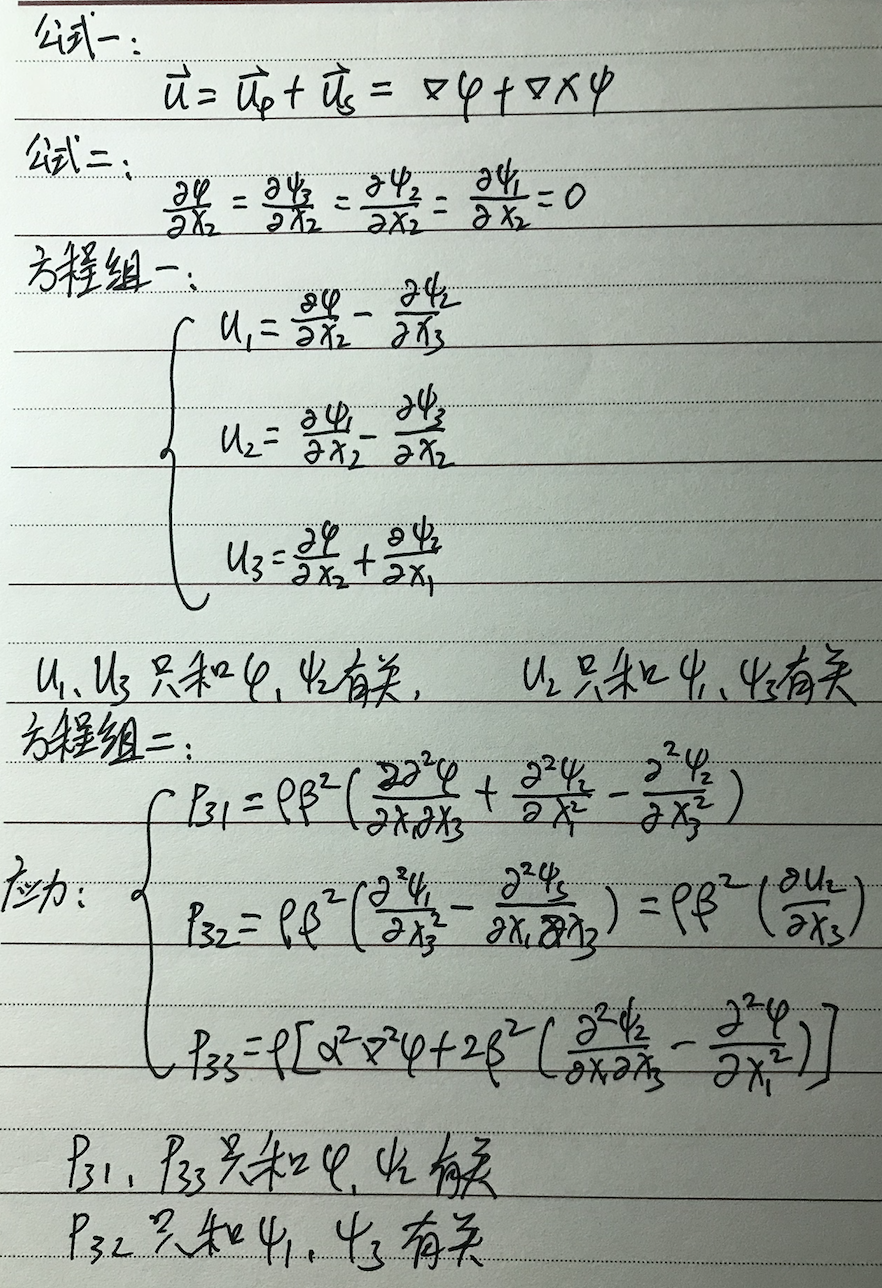 公式一:
$\vec{u} = \vec{u}_p + \vec{u}_s = \nabla\varphi + \nabla\times\psi$
公式二:
$\frac{\partial\varphi}{\partial x_2} = \frac{\partial\psi_3}{\partial x_2} = \frac{\partial\psi_2}{\partial x_2} = \frac{\partial\psi_1}{\partial x_2} = 0$
方程组一:
$u_1 = \frac{\partial\varphi}{\partial x_2} - \frac{\partial\psi_2}{\partial x_3}$
$u_2 = \frac{\partial\psi_1}{\partial x_2} - \frac{\partial\psi_3}{\partial x_2}$
$u_3 = \frac{\partial\varphi}{\partial x_2} + \frac{\partial\psi_2}{\partial x_1}$
$u_1$、$u_3$ 只和 $\varphi$、$\psi_2$ 有关, $u_2$ 只和 $\psi_1$、$\psi_3$ 有关
方程组二:
$P_{31} = \rho\beta^2\left(\frac{2\partial^2\varphi}{\partial x_1\partial x_3} + \frac{\partial^2\psi_2}{\partial x_1^2} - \frac{\partial^2\psi_2}{\partial x_3^2}\right)$
应力: $P_{32} = \rho\beta^2\left(\frac{\partial^2\psi_1}{\partial x_3^2} - \frac{\partial^2\psi_3}{\partial x_1\partial x_3}\right) = \rho\beta^2\left(\frac{\partial u_2}{\partial x_3}\right)$
$P_{33} = \rho\left[\alpha^2\nabla^2\varphi + 2\beta^2\left(\frac{\partial^2\psi_2}{\partial x_1\partial x_3} - \frac{\partial^2\varphi}{\partial x_1^2}\right)\right]$
$P_{31}$、$P_{33}$ 只和 $\varphi$、$\psi_2$ 有关
$P_{32}$ 只和 $\psi_1$、$\psi_3$ 有关